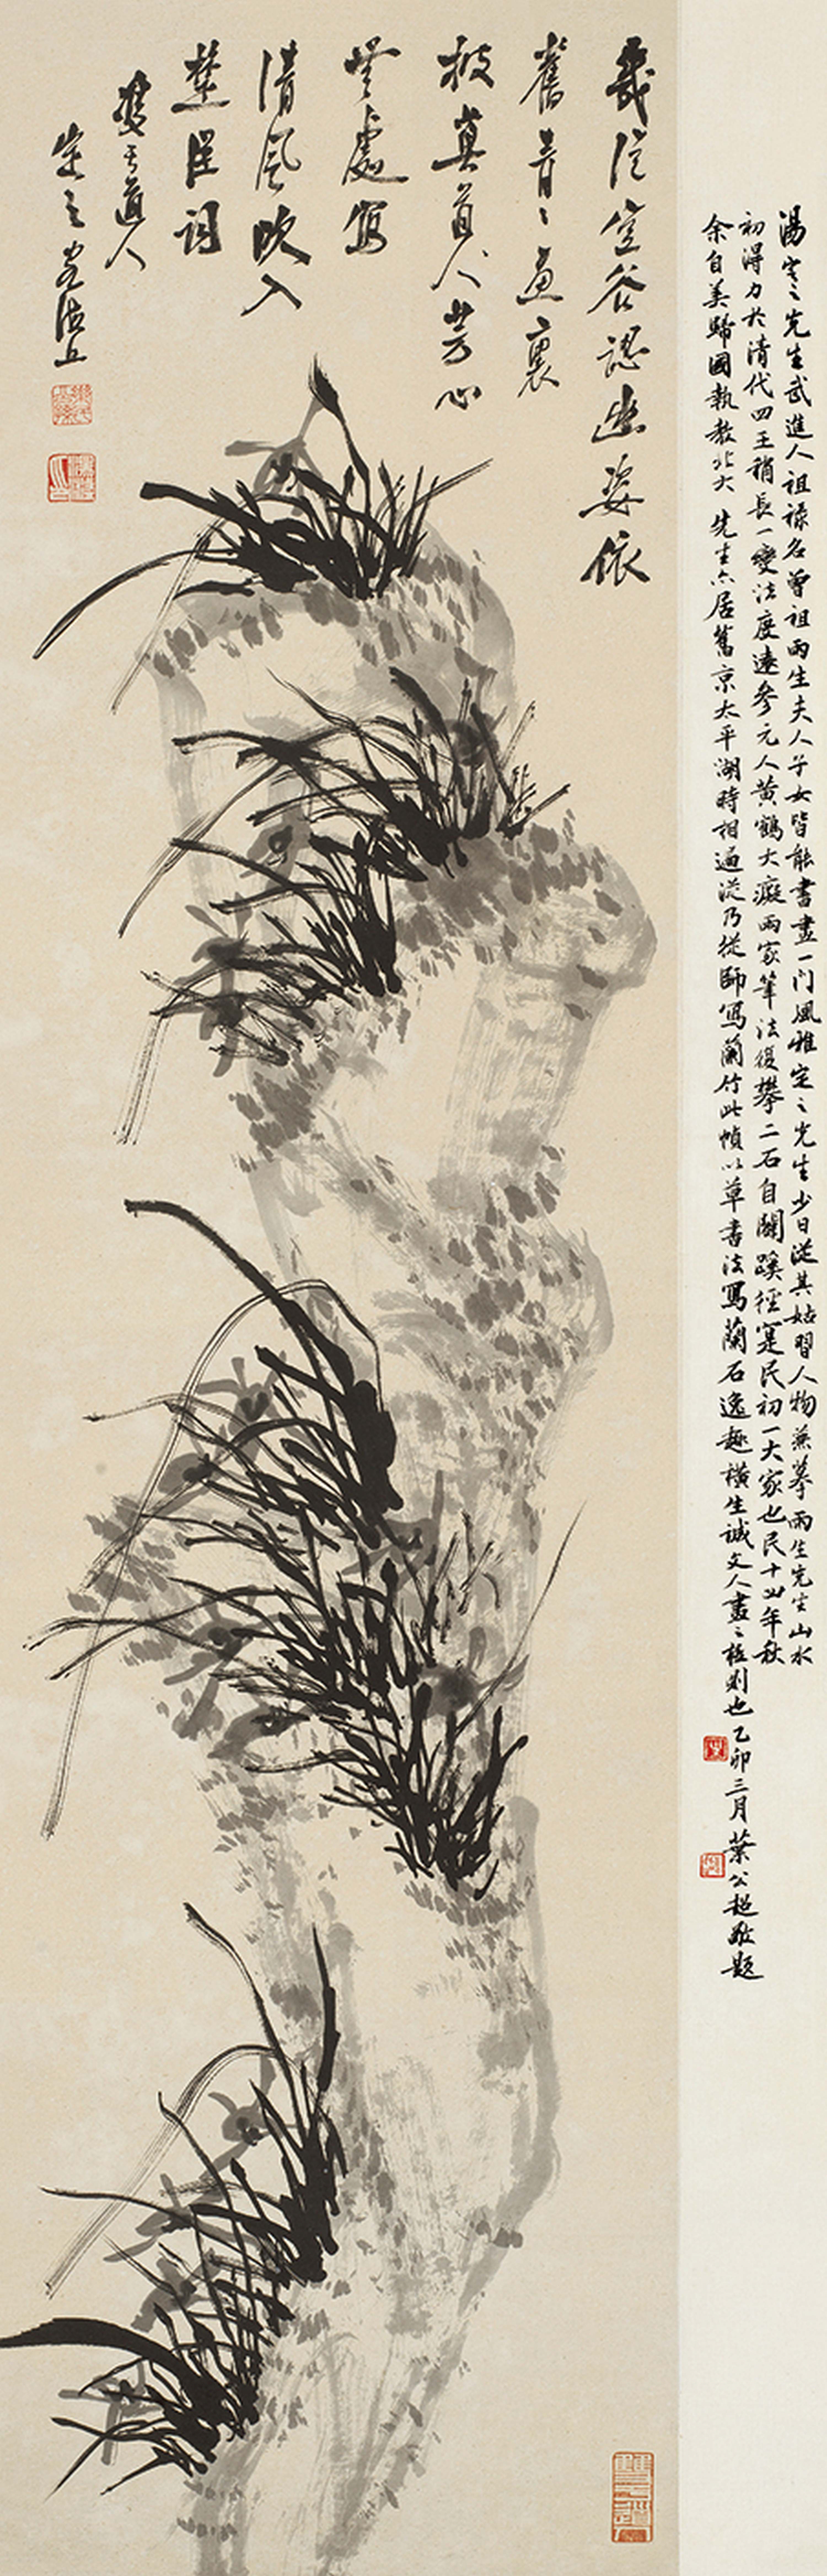 湯定之先生武進人祖祿名曾祖雨生夫人子女皆能書畫一門風雅定之先生少日從其姑習人物兼摹雨生先生山水
初得力於清代四王稍長一變法度遠參元人黃鶴大癡兩家筆法復攀二石自闢蹊徑寔民初一大家也民十年秋
余自美歸國執教北大先生亦居舊京太平湖時相過從乃從師寫蘭竹此幀以草書法寫蘭石逸趣橫生誠文人畫之極則也乙卯三月葉公超敬題
幾從空谷認幽姿依
舊青青畫裏
披莫道芳心
無處寫
清風吹入
楚臣詞
雙于道人
定之客滬上